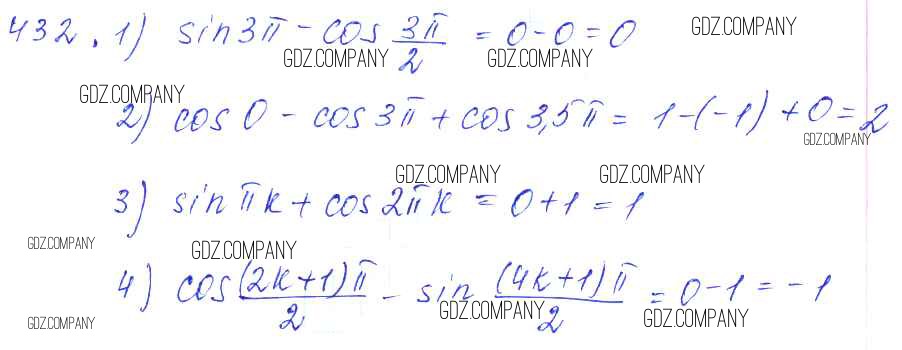 432. 1) sin3π - cos 3π/2 = 0 - 0 = 0 GDZ.COMPANY
GDZ.COMPANY GDZ.COMPANY
GDZ.COMPANY
2) cos 0 - cos 3π + cos 3,5π = 1 - (-1) + 0 = 2
GDZ.COMPANY
GDZ.COMPANY GDZ.COMPANY
3) sin πk + cos 2πk = 0 + 1 = 1
GDZ.COMPANY GDZ.COMPANY
4) cos (2k+1)π/2 - sin (4k+1)π/2 = 0 - 1 = -1
GDZ.COMPANY GDZ.COMPANY GDZ.COMPANY